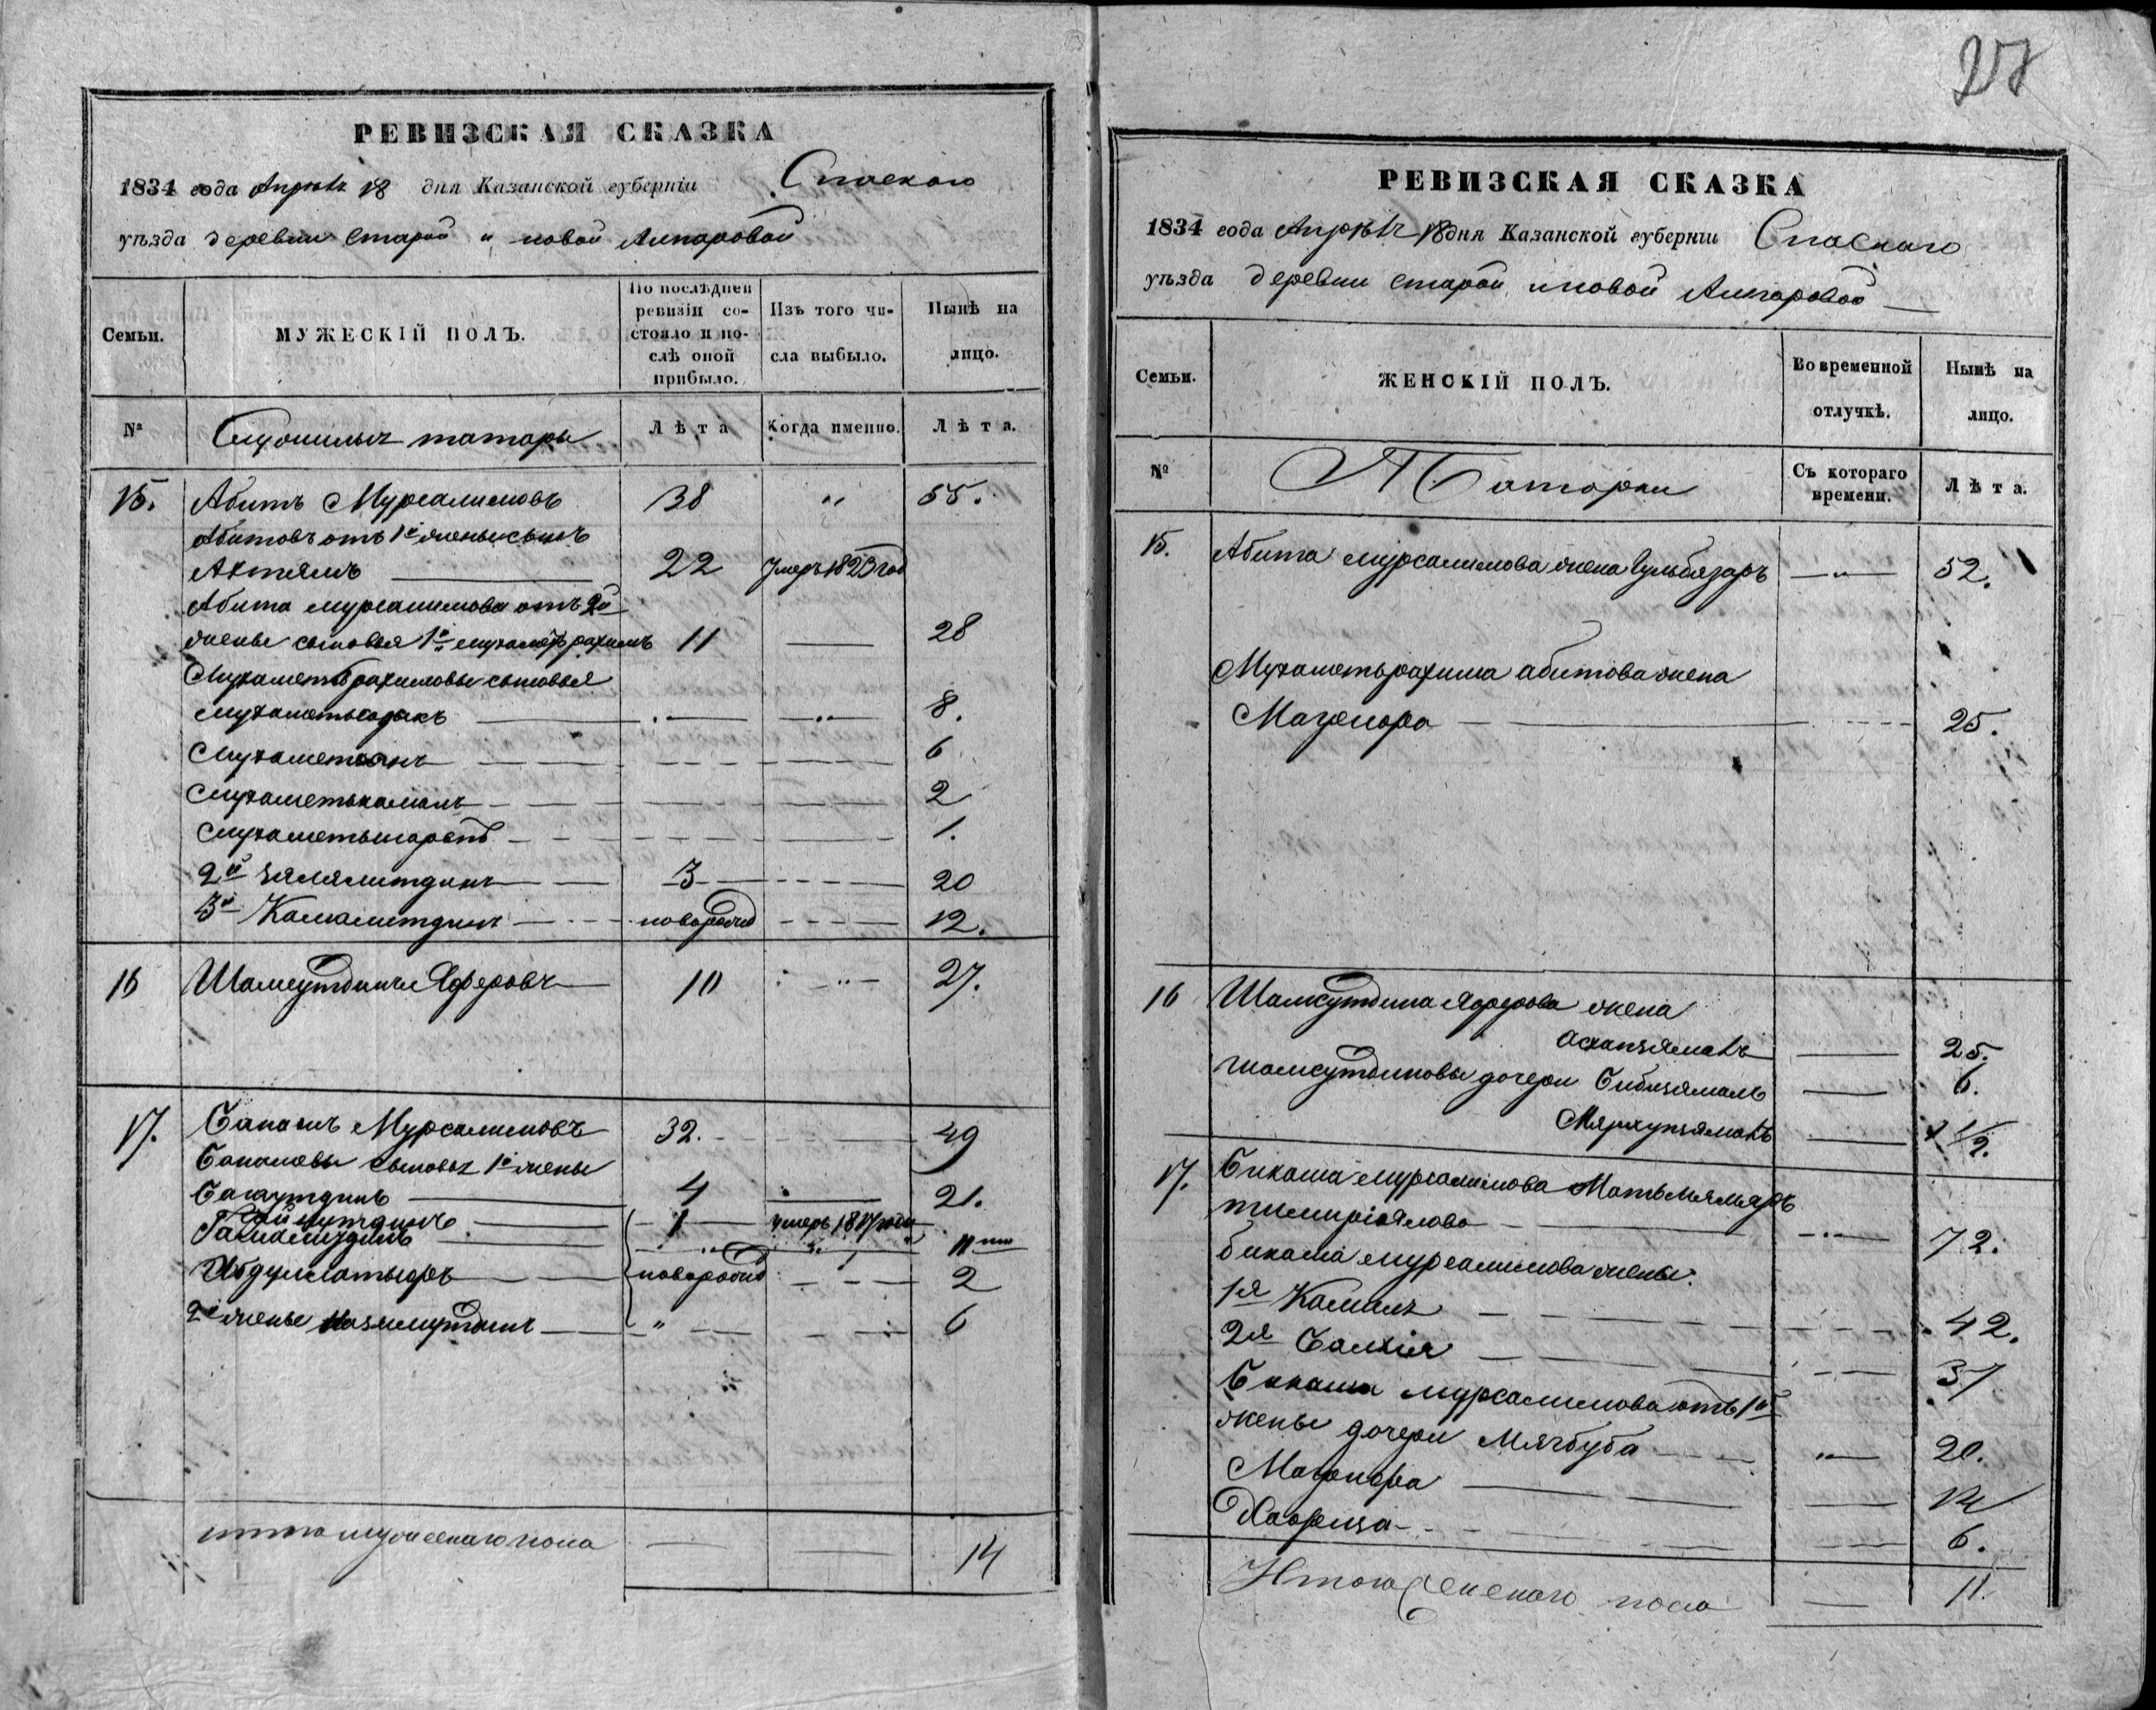 27
РЕВИЗСКАЯ СКАЗКА
1834 года Апреля 18 дня Казанской губерніи Спаскаго
уѣзда деревни старой и новой Алпаровой
Семьи.
МУЖЕСКІЙ ПОЛЪ.
По послѣдней ревизіи состояло и послѣ оной прибыло.
Изъ того числа выбыло.
Нынѣ на лицо.
№
татары
Лѣта
Когда именно.
Лѣта.
15. Абитъ Мурсалимовъ 38 " 55.
Абитовъ отъ 1й жены сынъ
Актямъ 22 умеръ 1823 год
Абита мурсалимова отъ 2й
жены сыновья 1й мухаметьрахимъ 11 28
Мухаметьрахимовы сыновья
мухаметьсадыкъ 8.
Мухаметьянъ 6
Мухаметькамалъ 2
мухаметьшарепъ 1.
2й Залялитдинъ 3 20
3й Камалитдинъ новорожд 12.
16 Шамсутдинъ Яферовъ 10 " 27.
17. Бикашъ Мурсалимовъ 32. 49
сыновья 1й жены
Багаутдинъ 4 21.
Гайнутдинъ 1 умеръ 1817 года
11
новорожд 2
2й жены Низамутдинъ " 6
итого мужескаго пола 14
РЕВИЗСКАЯ СКАЗКА
1834 года Апреля 18 дня Казанской губерніи Спаскаго
уѣзда деревни старой и новой Алпаровой
Семьи.
ЖЕНСКІЙ ПОЛЪ.
Во временной отлучкѣ.
Нынѣ на лицо.
№
Татарки
Съ котораго времени.
Лѣта.
15. Абита мурсалимова жена Гульбязаръ " 52.
Мухаметьрахима абитова жена
Магрпора 25.
16 Шамсутдина Яферова жена
25.
шамсутдиновы дочери Бибизямалъ 6.
1/2.
17. Бикаша мурсалимова Мать
72.
бикаша мурсалимова жены.
1я Камалъ 42.
2я Салхія 37
Бикаша мурсалимова отъ 1й
жены дочери Мягбуба " 20.
14
6.
Итого женскаго пола 11.